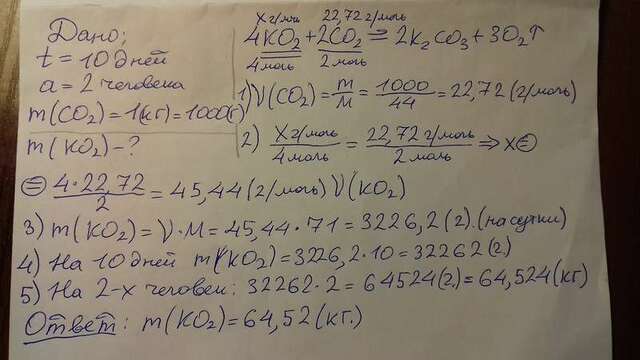 Дано:
t = 10 дней
a = 2 человека
m(CO₂) = 1(кг) = 1000(г)
m(KO₂) - ?
X г/моль 22,72 г/моль
4KO₂ + 2CO₂ = 2K₂CO₃ + 3O₂↑
4 моль 2 моль
1) ν(CO₂) = m/M = 1000/44 = 22,72 (г/моль)
2) X г/моль / 4 моль = 22,72 г/моль / 2 моль ⇒ X⊜
⊜ 4·22,72/2 = 45,44 (г/моль) ν(KO₂)
3) m(KO₂) = ν·M = 45,44·71 = 3226,2 (г). (на сутки)
4) На 10 дней m(KO₂) = 3226,2·10 = 32262 (г)
5) На 2-х человек: 32262·2 = 64524(г) = 64,524(кг)
Ответ: m(KO₂) = 64,52 (кг.)